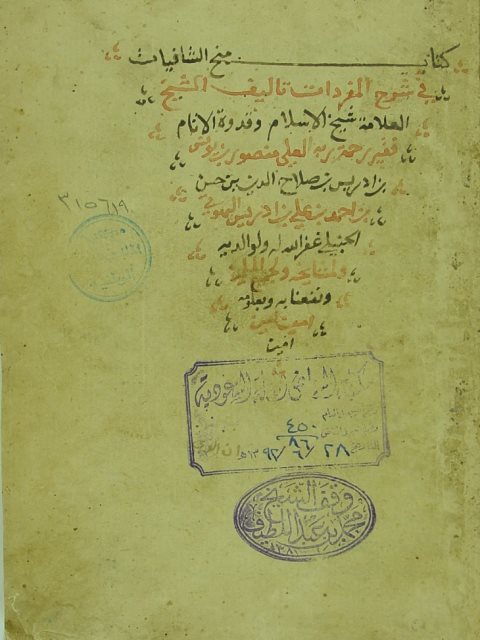 كتاب منح الشافيات
في شرح المفردات تاليف الشيخ
العلامة شيخ الاسلام وقدوة الانام
فقير رحمة ربه العلي منصور بن يونس
بن ادريس بن صلاح الدين بن حسن
بن احمد بن علي بن ادريس البهوتي
الحنبلي غفر الله له ولوالديه
ولمشايخه ولجميع
ونفعنا به وبعلومه
امين
امين
٣١٥٦١٩
السعودية
٤٥٠
٨٦
٢٨ / ٦ / ١٣٩٢ه
وقف الشيخ
محمد بن عبد اللطيف
١٣٨١